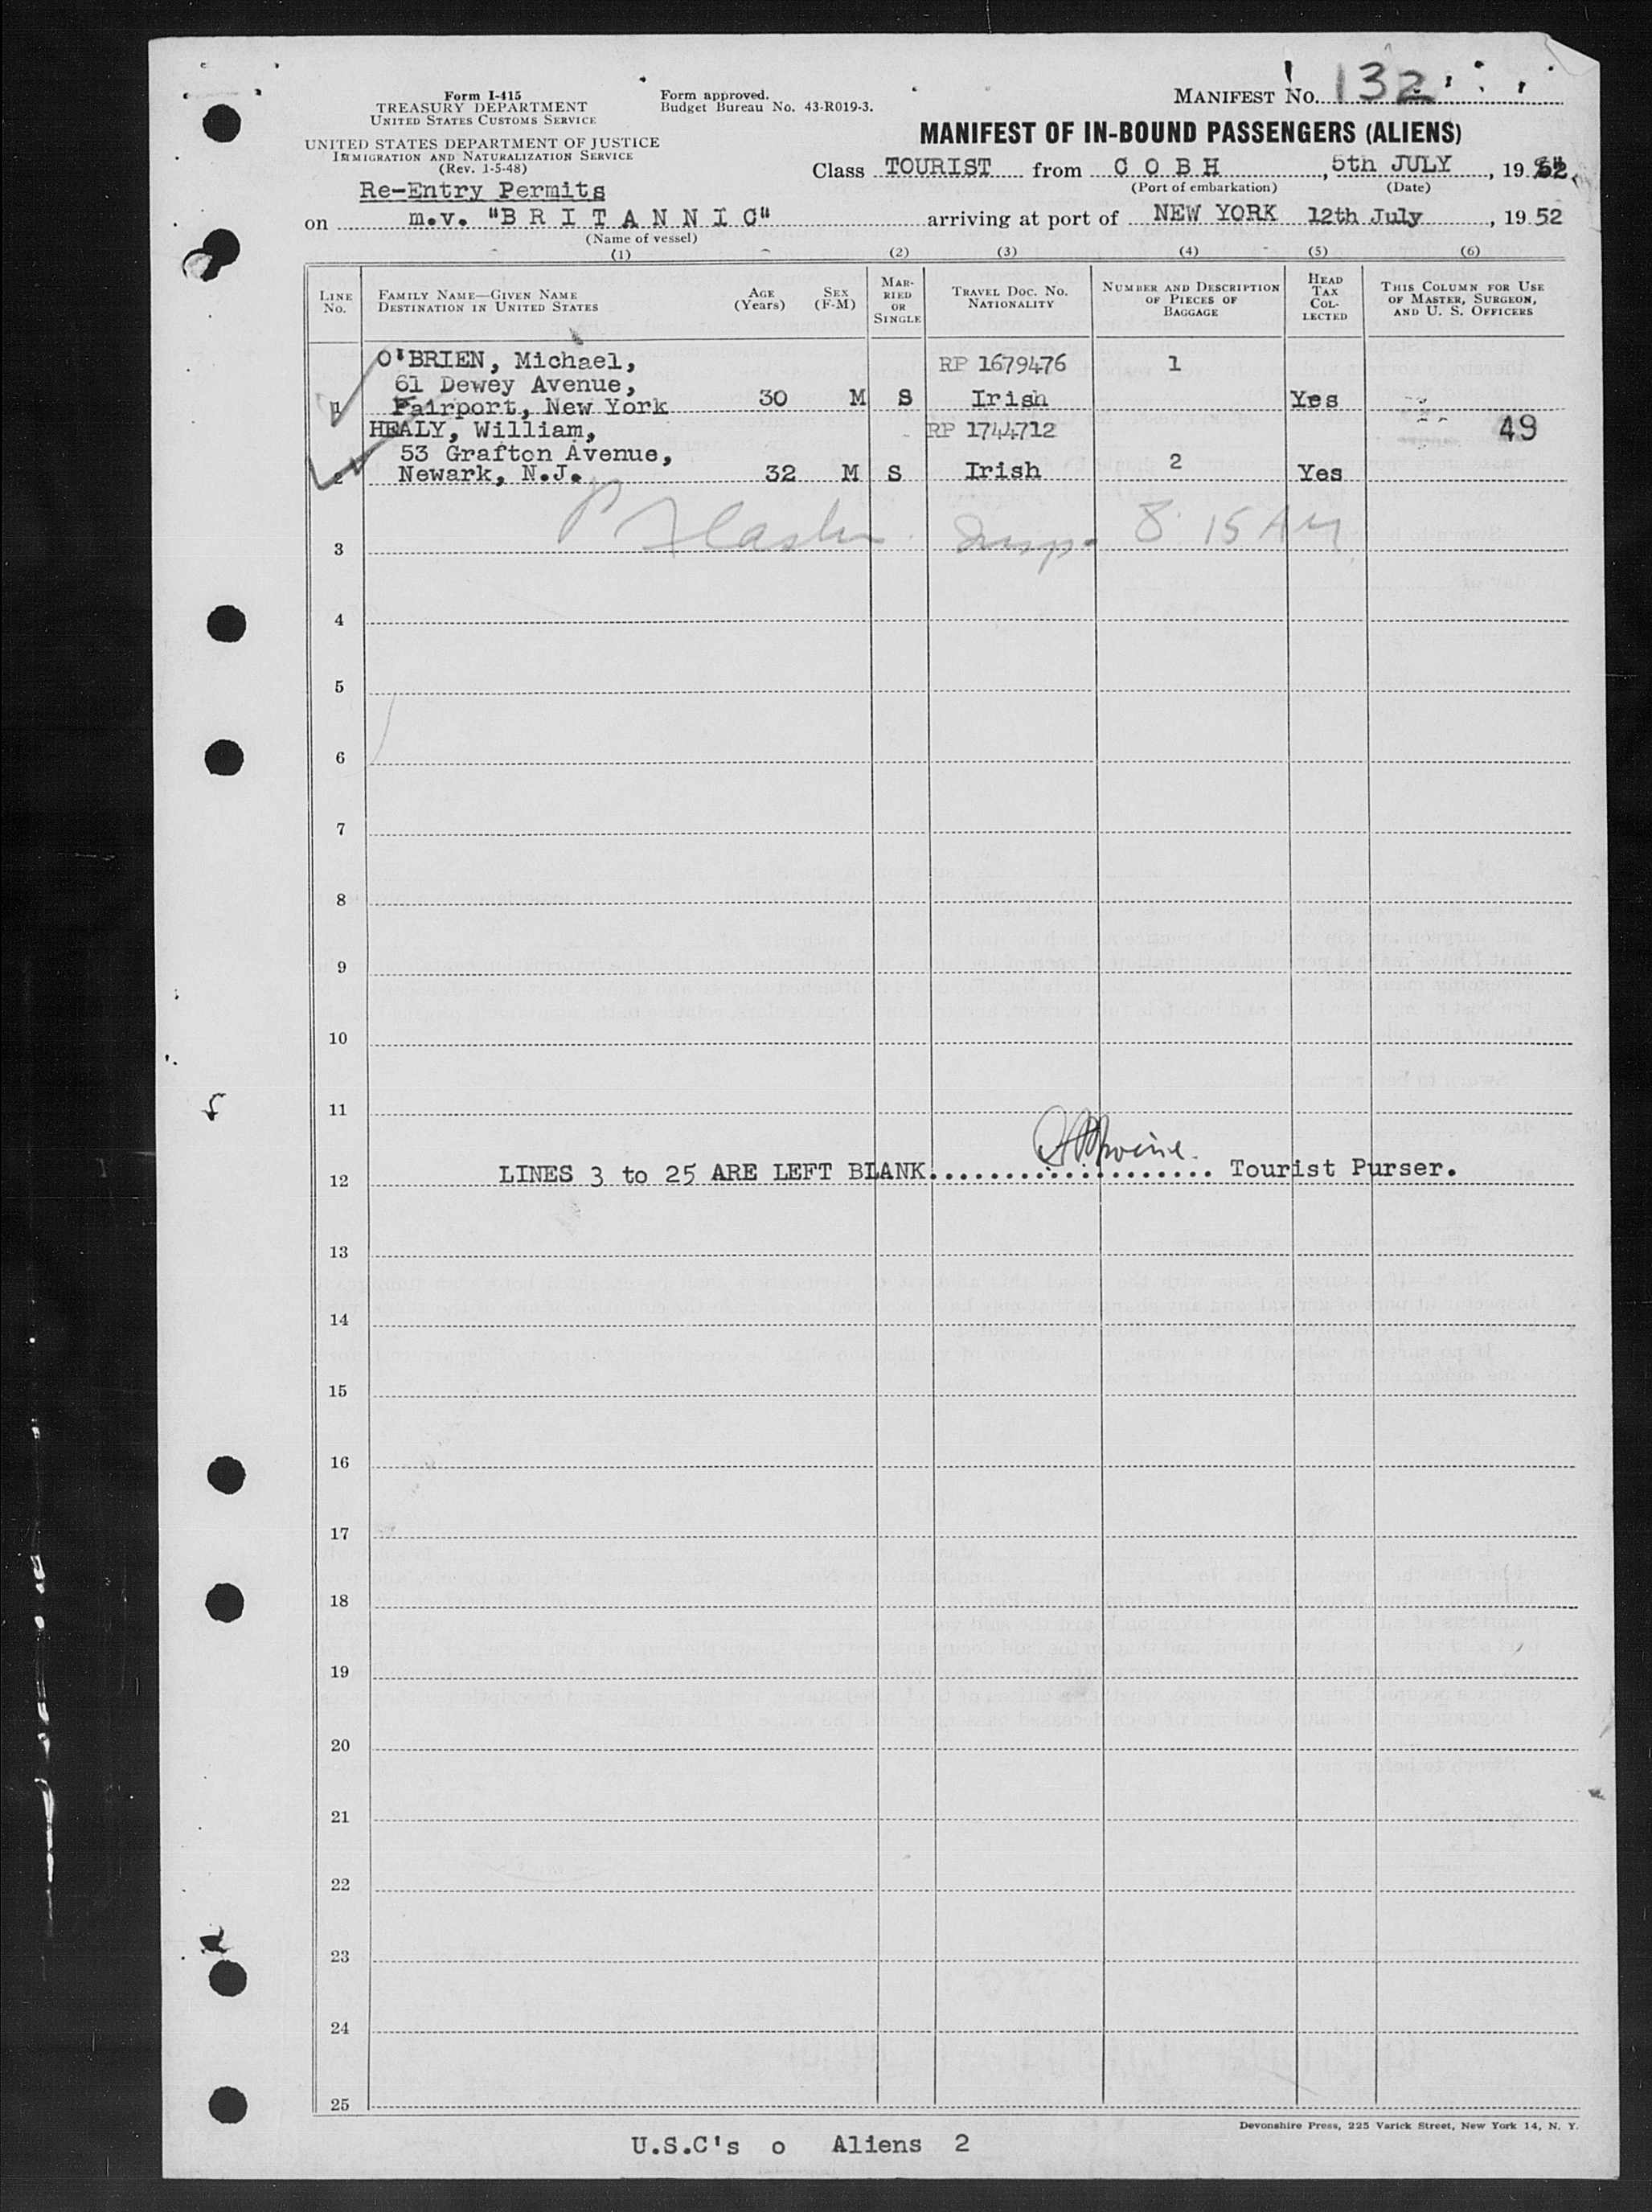 Form I-415
TREASURY DEPARTMENT
UNITED STATES CUSTOMS SERVICE
UNITED STATES DEPARTMENT OF JUSTICE
IMMIGRATION AND NATURALIZATION SERVICE
(Rev. 1-5-48)
Form approved.
Budget Bureau No. 43-R019-3.
MANIFEST NO. 132
MANIFEST OF IN-BOUND PASSENGERS (ALIENS)
Class TOURIST from C O B H, 5th JULY, 1952.
(Port of embarkation) (Date)
Re-Entry Permits
on m.v. "B R I T A N N I C" arriving at port of NEW YORK 12th July, 1952
(Name of vessel)
(1) (2) (3) (4) (5) (6)
LINE NO. FAMILY NAME—GIVEN NAME DESTINATION IN UNITED STATES AGE (Years) SEX (F-M) MARRIED OR SINGLE TRAVEL DOC. NO. NATIONALITY NUMBER AND DESCRIPTION OF PIECES OF BAGGAGE HEAD TAX COLLECTED THIS COLUMN FOR USE OF MASTER, SURGEON, AND U. S. OFFICERS
O'BRIEN, Michael, RP 1679476 1
61 Dewey Avenue,
1 Fairport, New York 30 M S Irish Yes
HEALY, William, RP 1744712 49
53 Grafton Avenue,
2 Newark, N.J. 32 M S Irish 2 Yes
Insp. 8 15 AM
3
4
5
6
7
8
9
10
11
12 LINES 3 to 25 ARE LEFT BLANK................... Tourist Purser.
13
14
15
16
17
18
19
20
21
22
23
24
25
Devonshire Press, 225 Varick Street, New York 14, N. Y.
U.S.C's o Aliens 2